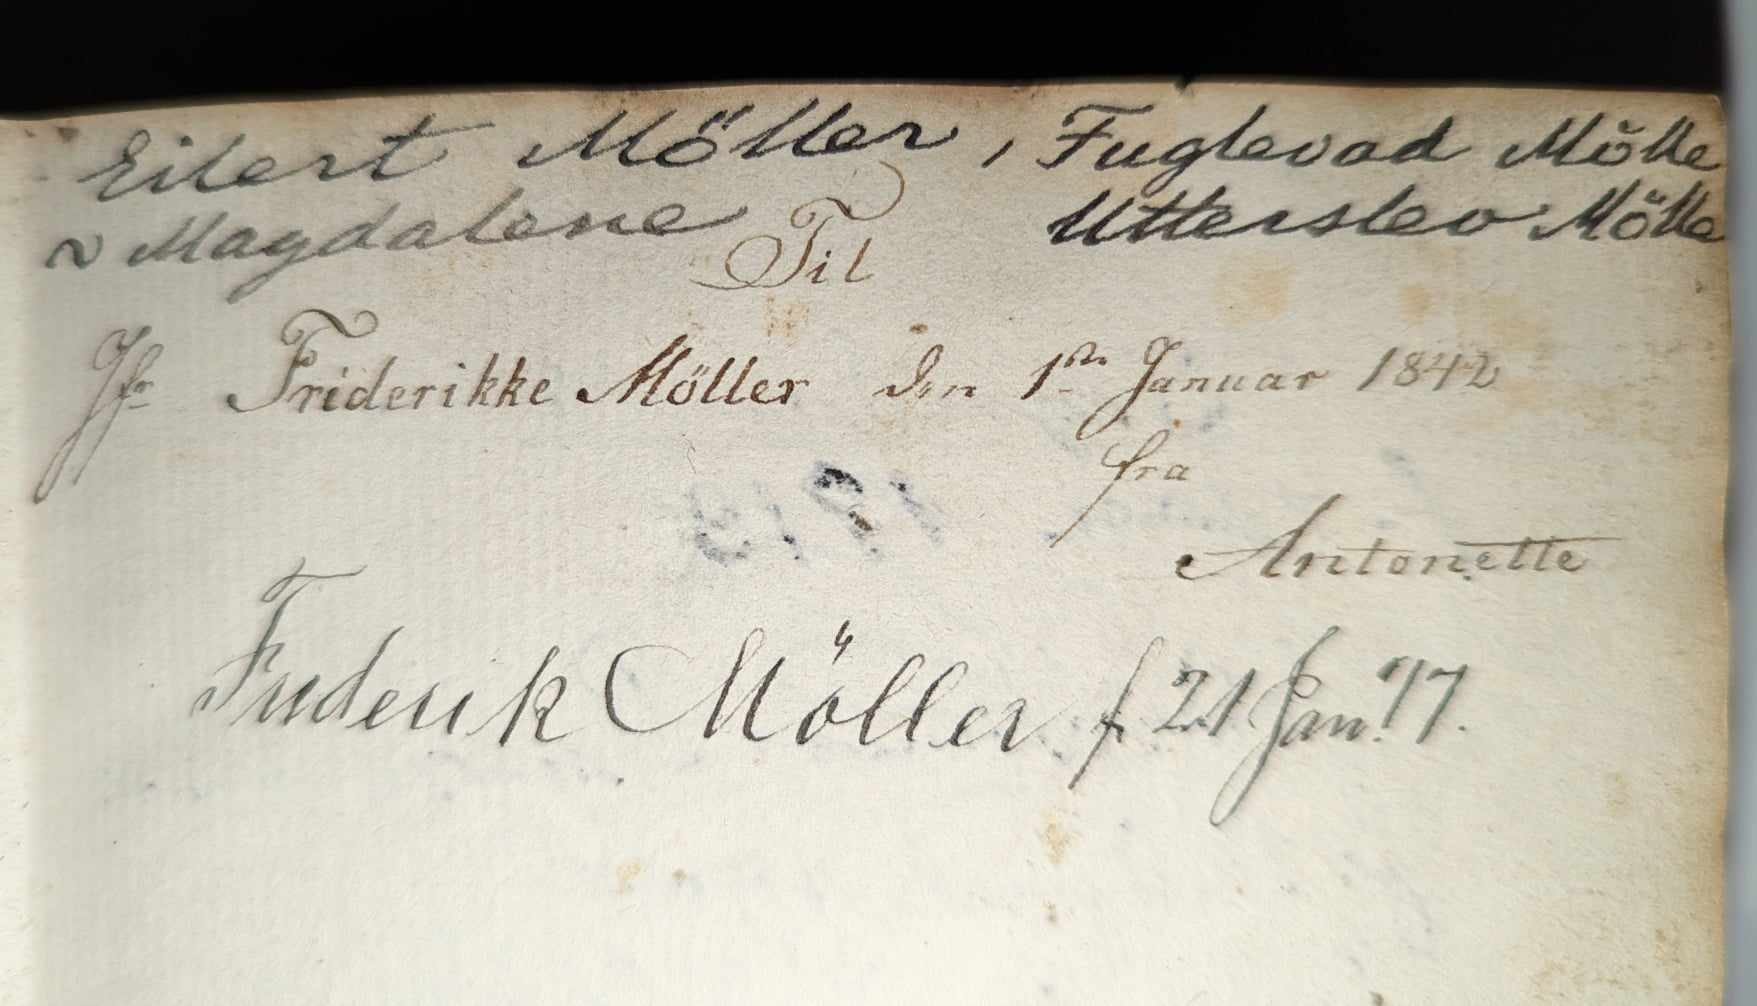 Eilert Möller, Fuglevad Mölle
Magdalene Utterslev Mölle
Til
Jfr Friderikke Möller den 1ste Januar 1842
fra
Antonette
Frederik Möller f 21 Jan. 77.